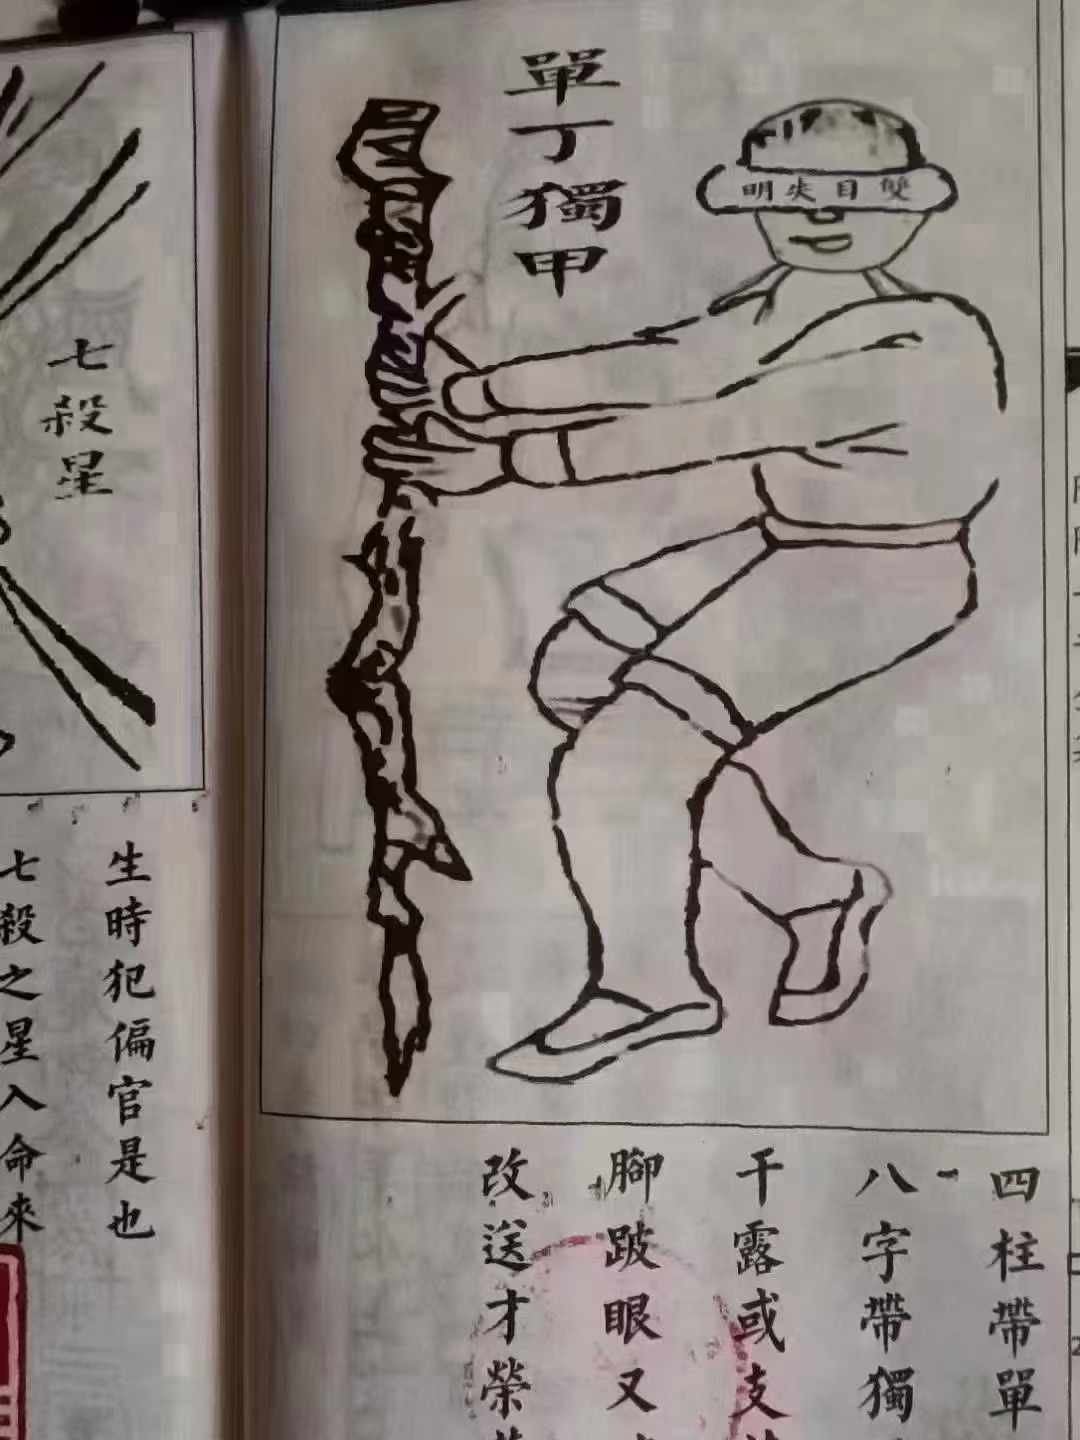 單丁獨甲
雙目失明
四柱帶單
八字帶獨
干露或支
腳跛眼又
改送才榮
七殺星
生時犯偏官是也
七殺之星入命來